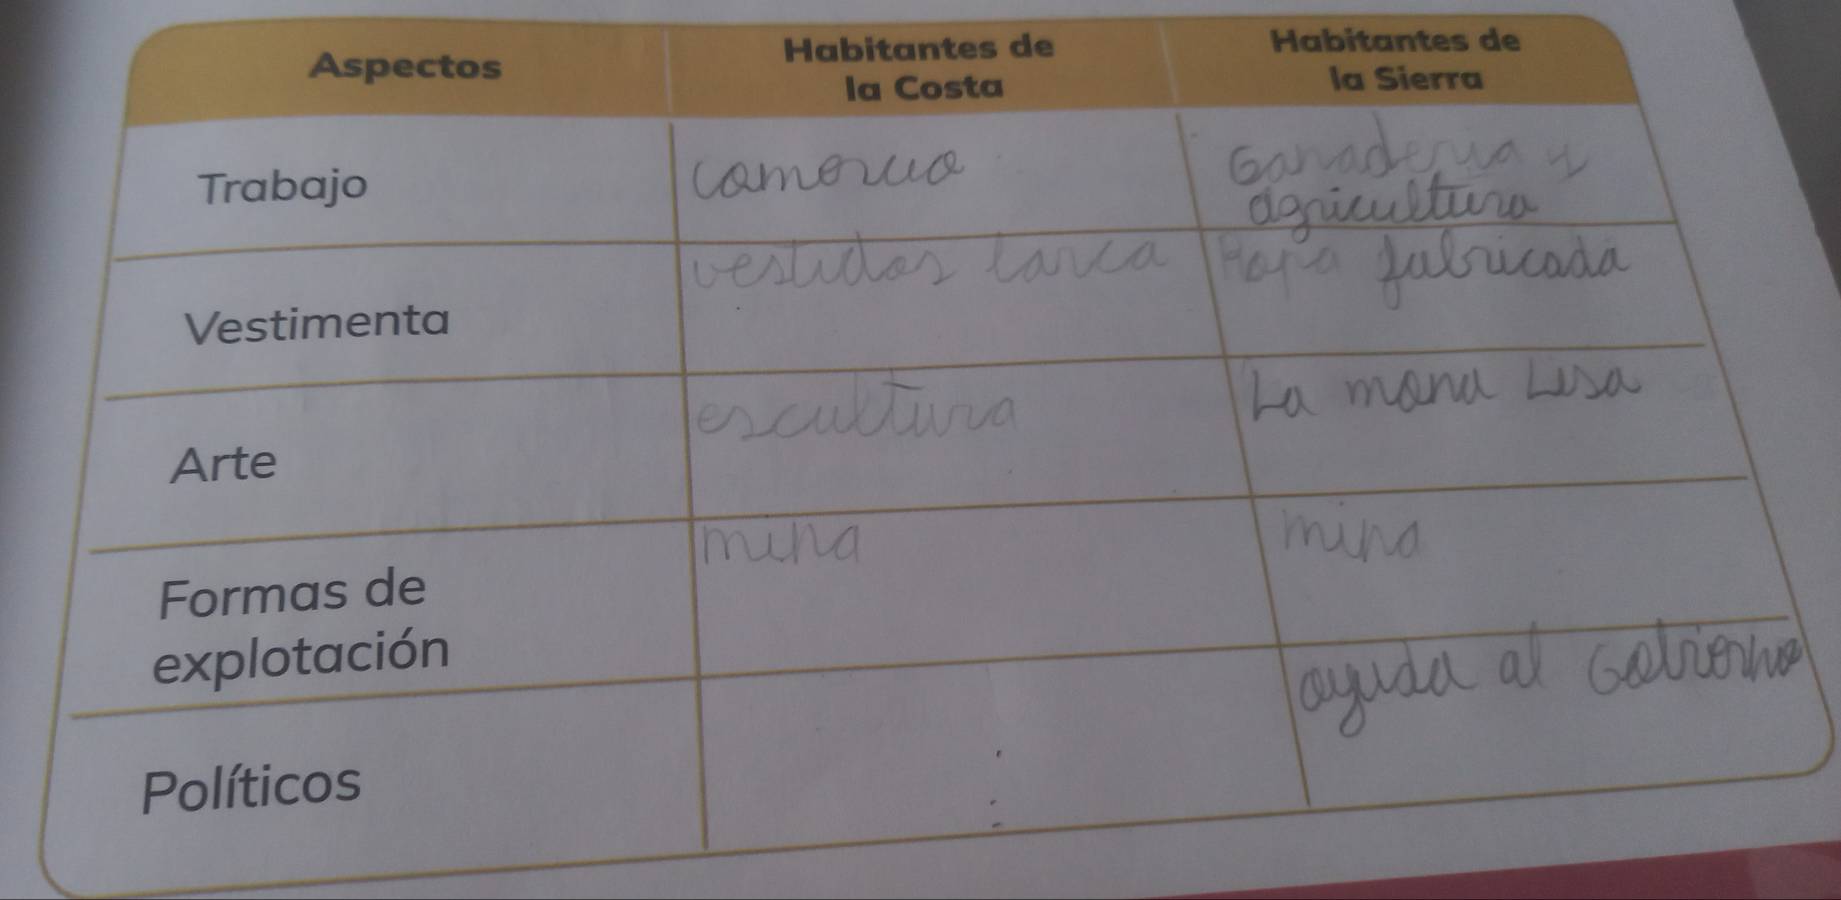 Aspectos
Habitantes de
la Costa
Habitantes de
la Sierra
Trabajo
comercio
Ganaderia y
agricultura
Vestimenta
vestidos larca
Ropa fabricada
Arte
escultura
La mona Lisa
Formas de
explotación
mina
mina
Políticos
ayuda al Gobierno